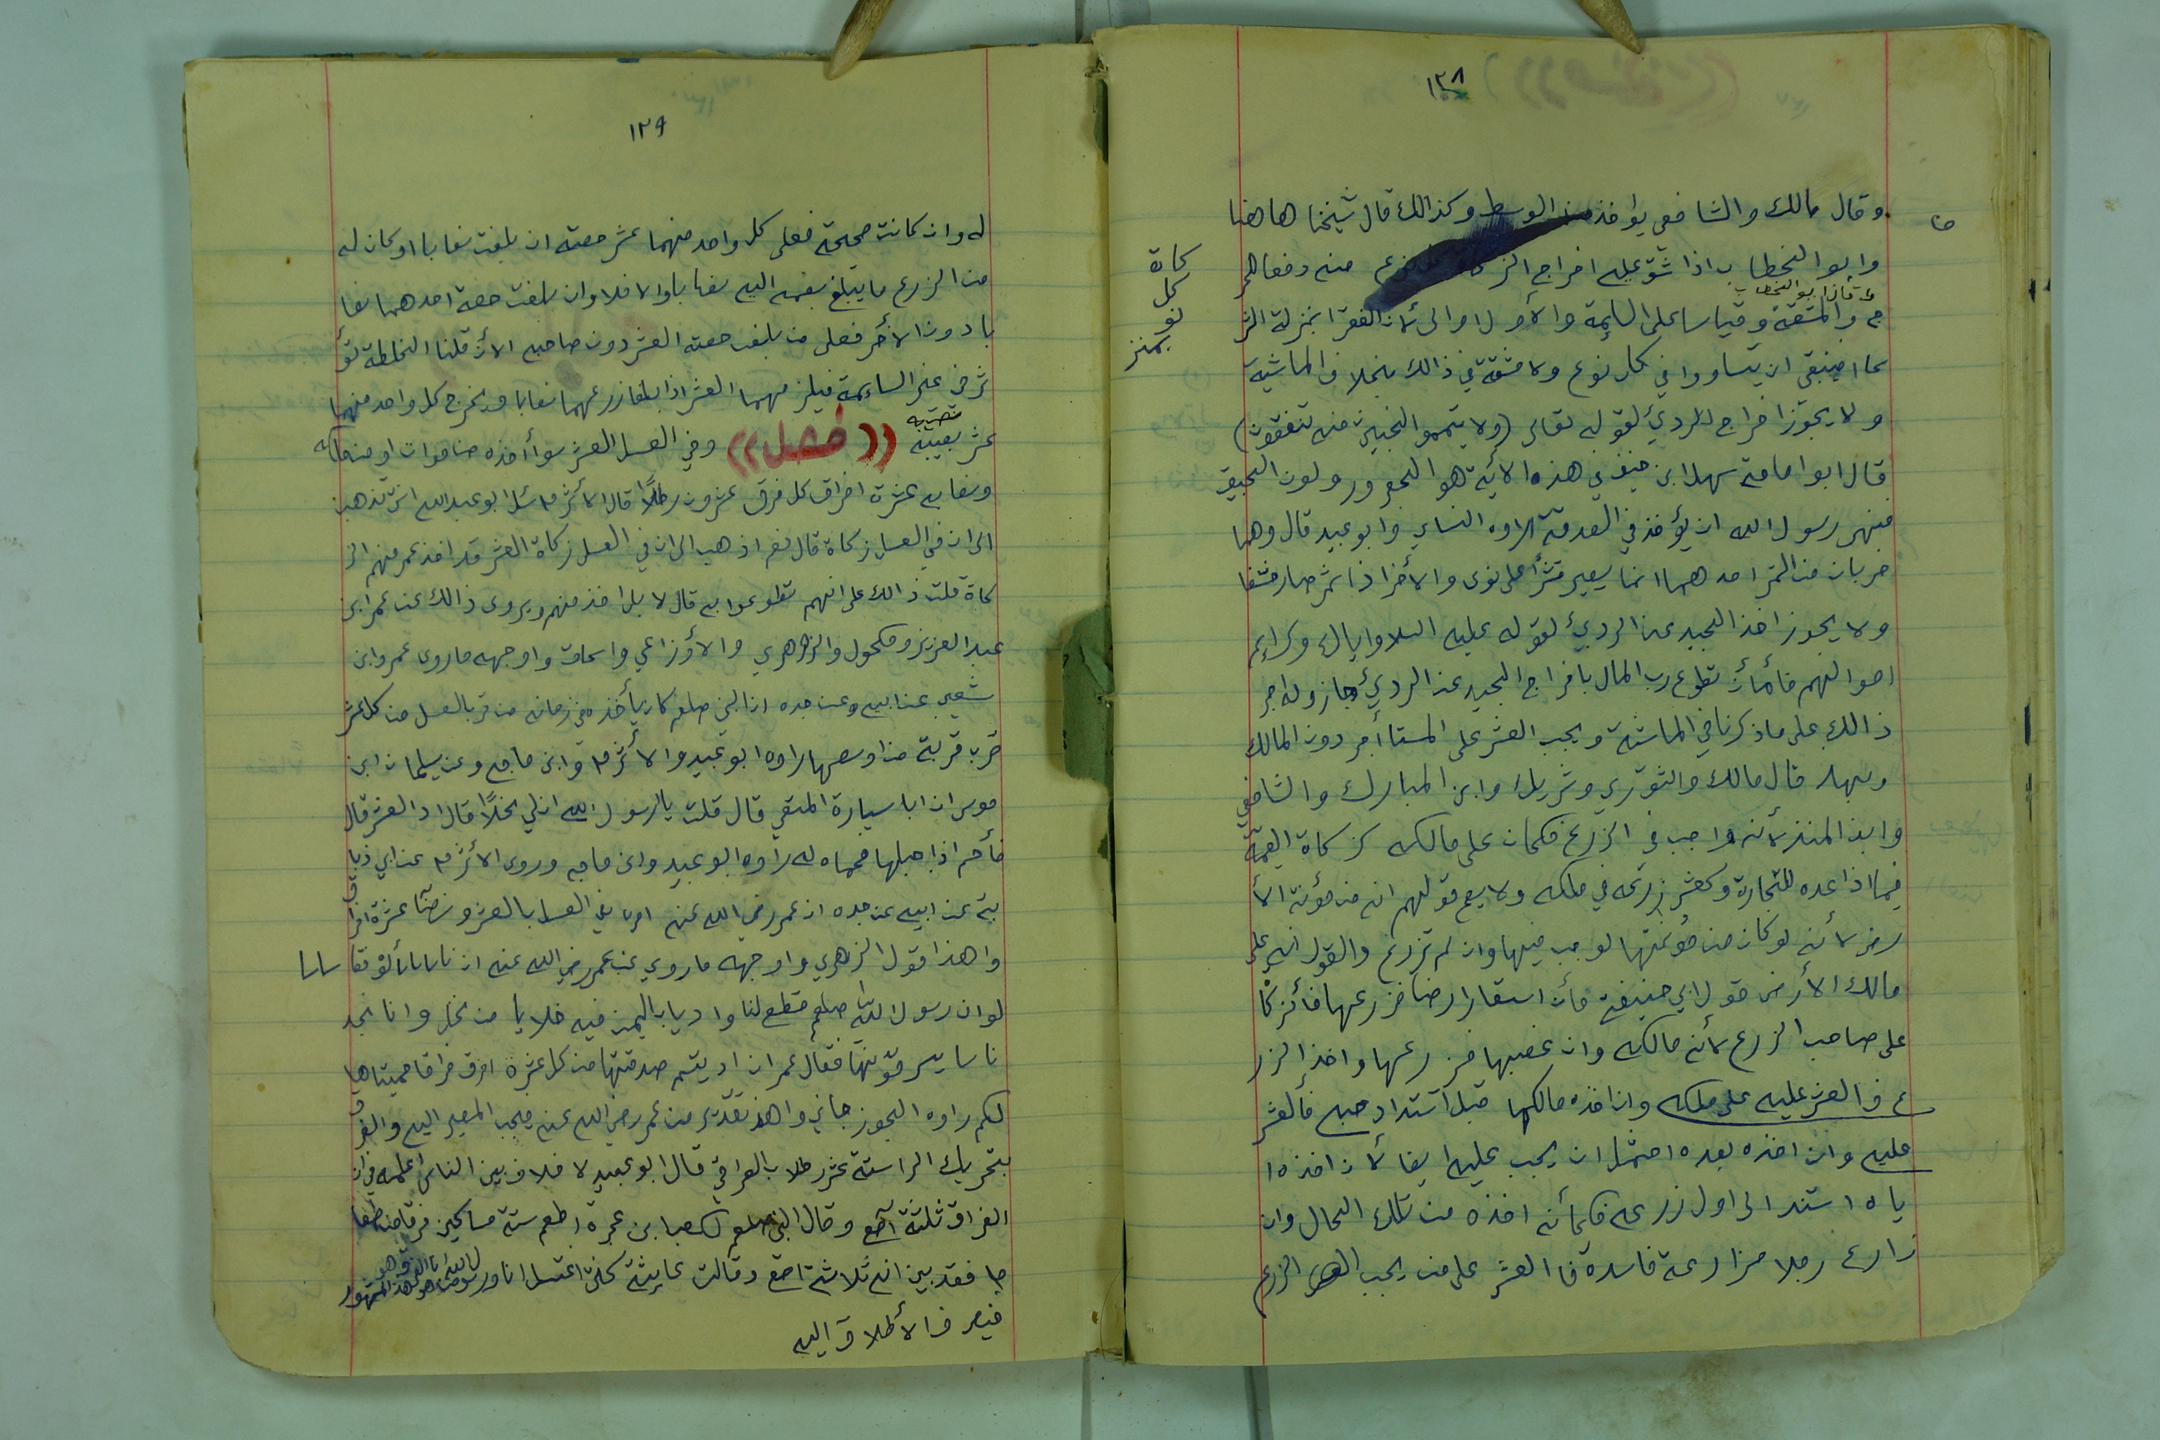 ١٢٨
وقال مالك والشافعي يؤخذ من الوسط وكذالك قال شيخنا هاهنا
وابو الخطاب اذا شق عليه اخراج الز منه دفعا للحر
كاة
كل
نو
بمنز
ج والمشقة وقياسا على السايمة والأول اولى لأن الفقرا بمنزلة الشر
كا فينبغي ان يتساووا في كل نوع ولا مشقة في ذالك بخلاف الماشية
ولا يجوز اخراج الردئ لقوله تعالى (ولا تيمموا الخبيث منه تنفقون)
قال ابو امامة سهل ابن حنيف في هذه الأية هو الجعرور ولون الحبيق
فنهى رسول الله ان يؤخذ في الصدقة رواه النساي وابو عبيد قال وهما
ضربان من التمر احدهما انما يصير قشرًا على نوى والأخر اذا اثمر صار حشفا
ولا يجوز اخذ الجيد عن الردئ لقوله عليه السلا واياك وكرايم
اموالهم فأن تطوع رب المال باخراج الجيد عن الردئ جاز وله اجر
ذالك على ما ذكرنا في الماشية ويجب العشر على المستأجر دون المالك
وبهاد قال مالك والثوري وشريك وابن المبارك والشافعي
وابن المنذر لأنه واجب في الزرع فكان على مالكه كزكاة القيمة
فيما اذا عده للتجارة وكعشر زرعه في ملكه ولا يصح قولهم انه من مؤنة الأ
رض لأنه لو كان من مؤنتها لوجب فيها وان لم تزرع والقول انه على
مالك الأرض قول ابي حنيفة فأن استعار ارضا فزرعها فألزكا
على صاحب الزرع لأنه مالكه وان غصبها فزرعها واخذ الزر
ع فالعشر عليه على ملكه وان اخذه مالكها قبل اشتداد حبه فألعشر
عليه وان اخذه بعده احتمل ان يجب عليه ايضا لأن اخذه ا
ياه استند الى اول زرعه فكأنه اخذه من تلك الحال وان
زارع رجلا مزارعة فاسدة فا العشر على من يجب الزرع
١٢٩
له وان كانت صحيحة فعلى كل واحد منهما عشر حصته ان بلغت نصابا او كان له
من الزرع ما يبلغ بضمه اليه نصابا والا فلا وان بلغت حصة احدهما نصا
با دون الأخر فعلى من بلغت حصته العشر دون صاحبه الا ان قلنا الخلطة تؤ
ثر في غير السايمة فيلزمهما العشر اذا بلغا زرعهما نصابا ويخرج كل واحد منهما
عشر نصيبه ((فصل)) وفي العسل العشر سوأ أخذه من موات او من ملكه
ونصابه عشرة افراق كل فرق عشرون رطلاً قال الأثرم سئل ابو عبد الله انت تذهب
الى ان في العسل زكاة قال نعم اذهب الى ان في العسل زكاة العشر قد اخذ عمر منهم الز
كاة قلت ذالك على انهم تطوعوا به قال لا بل اخذ منهم ويروى ذالك عن عمر ابن
عبد العزيز ومكحول والزهري والأوزاعي واسحاق واوجهه ما روى عمر وابن
شعيب عن ابيه وعن جده ان النبي صلعم كان يأخذ في زمانه من قرب العسل من كل عشر
قرب قربة من اوسطها رواه ابو عبيد والأثرم وابن ماجه وعن سليمان ابن
موسى ان ابا سيارة المتقي قال قلت يارسول الله ان لي نحلًا قال اد العشر قال
فأحم اذا جبلها فحماه له رواه ابو عبيد وابن ماجه وروى الأثرم عن ابي ذبا
بة عن ابيه عن جده ان عمر رضي الله عنه امره في العسل بالعشر ونصا عشرة افرا
ق
واهذا قول الزهري واوجهه ماروي عن عمر رضي الله عنه ان ناسا سألوه فقا
لو ان رسول الله صلعم قطع لنا واديا باليمن فيه خلايا من نحل وانا نجد
ناسا يسرقونها فقال عمر ان اديتم صدقتها من كل عشرة افرق فرقا حميناها
لكم رواه الجوزجاني واهذ تقدير من عمر رضي الله عنه فيجب المصير اليه والفر
ق
بتحريك الرا ستة عشر رطلا بالعراقي قال ابو عبيد لا خلاف بين الناس اعلمه في ان
الفرق ثلثة آصع وقال النبي صلعم لكعب ابن عجرة اطعم ستة مساكين فرقا من طعا
م فقد بين انه ثلاثة اصع وقالت عايشة كنت اغتسل انا ورسول
فينصرف الأطلاق اليه